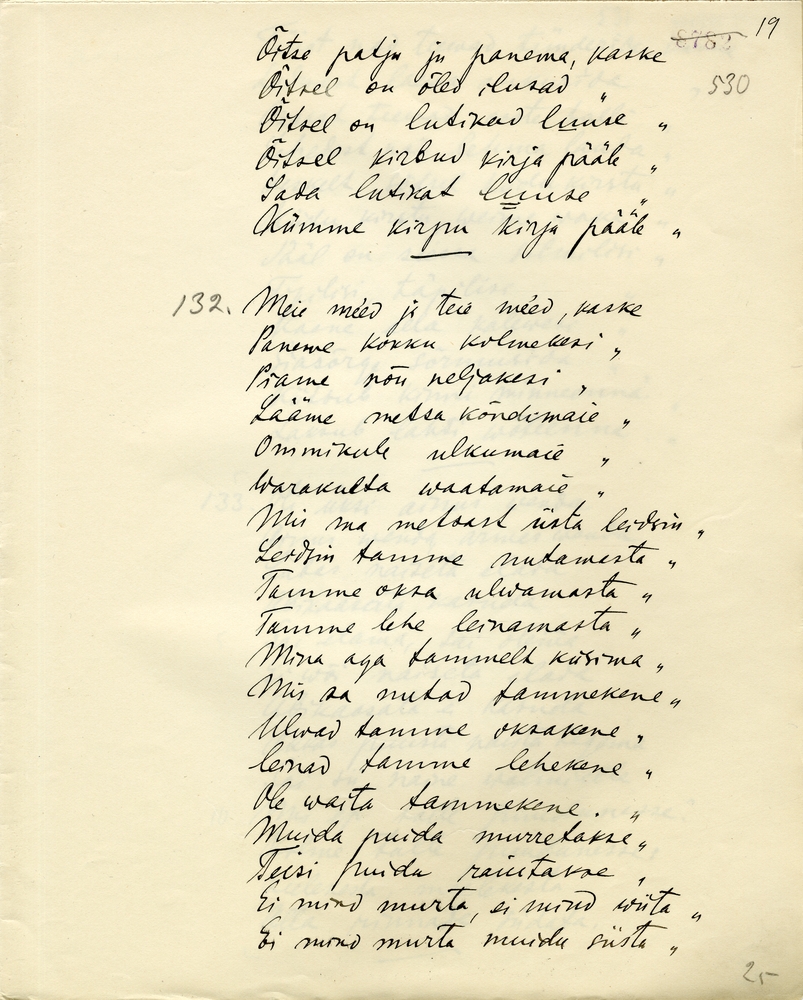 19
8782
530
Õitse patju ju panema, kaske
Õitsel on õled ilusad "
Õitsel on lutikad luuse "
Õitsel kirbud kirja pääle "
Sada lutikat luuse "
Kümme kirpu kirja pääle "
132. Meie meed ja teie meed, kaske
Paneme kokku kolmekesi "
Piame nõu neljakesi "
Lääme metsa kõndimaie "
Ommikule ulkumaie "
Warakulta waatamaie "
Mis ma metsast üsta leidsin "
Leidsin tamme nutamasta "
Tamme oksa ulwamasta "
Tamme lehe leinamasta "
Mina aga tammelt küsima "
Mis sa nutad tammekene "
Ulwad tamme oksakene "
leinad tamme lehekene "
Ole waita tammekene. "
Muida puida murretakse "
Teisi puida raiutakse "
Ei mind murta, ei mind wiita "
Ei mind murta muida siista "
25